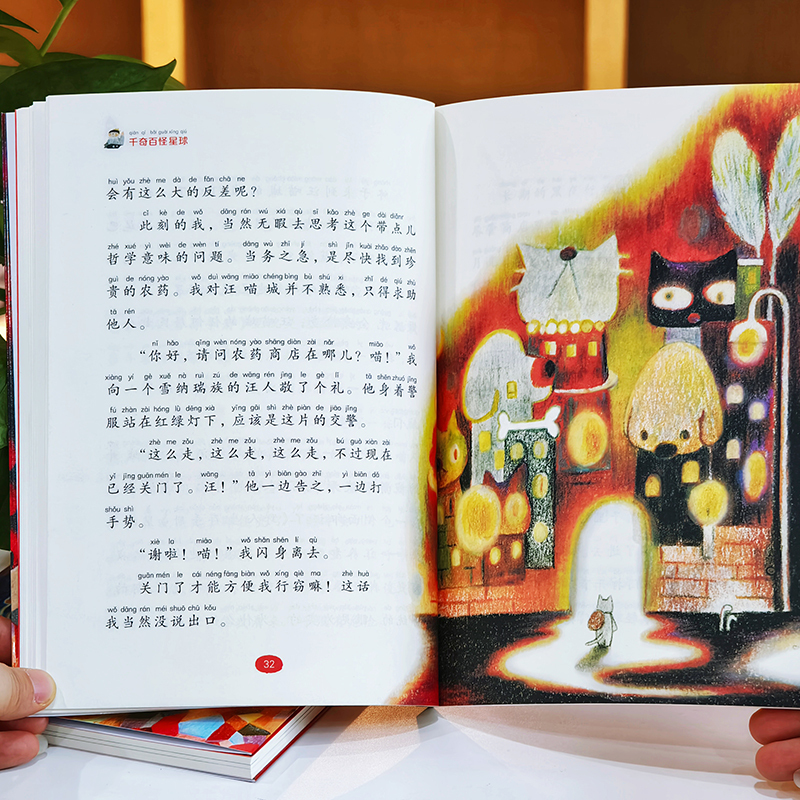 qiān qí bǎi guài xīng qiú
千奇百怪星球
huì yǒu zhè me dà de fǎn chā ne
会有这么大的反差呢？
cǐ kè de wǒ dāng rán wú xiá qù sī kǎo zhè ge dài diǎnr
此刻的我，当然无暇去思考这个带点儿
zhé xué yì wèi de wèn tí dāng wù zhī jí shì jǐn kuài zhǎo dào zhēn
哲学意味的问题。当务之急，是尽快找到珍
guì de nóng yào wǒ duì wāng miāo chéng bìng bù shú xī zhǐ dé qiú zhù
贵的农药。我对汪喵城并不熟悉，只得求助
tā rén
他人。
nǐ hǎo qǐng wèn nóng yào shāng diàn zài nǎr miāo wǒ
“你好，请问农药商店在哪儿？喵！”我
xiàng yí gè xuě nà ruì zú de wāng rén jìng le gè lǐ tā shēn zhuó jǐng
向一个雪纳瑞族的汪人敬了个礼。他身着警
fú zhàn zài hóng lǜ dēng xià yīng gāi shì zhè piàn de jiāo jǐng
服站在红绿灯下，应该是这片的交警。
zhè me zǒu zhè me zǒu zhè me zǒu bú guò xiàn zài
“这么走，这么走，这么走，不过现在
yǐ jīng guān mén le wāng tā yì biān gào zhī yì biān dǎ
已经关门了。汪！”他一边告之，一边打
shǒu shì
手势。
xiè la miāo wǒ shǎn shēn lí qù
“谢啦！喵！”我闪身离去。
guān mén le cái néng fāng biàn wǒ xíng qiè ma zhè huà
关门了才能方便我行窃嘛！这话
wǒ dāng rán méi shuō chū kǒu
我当然没说出口。
32